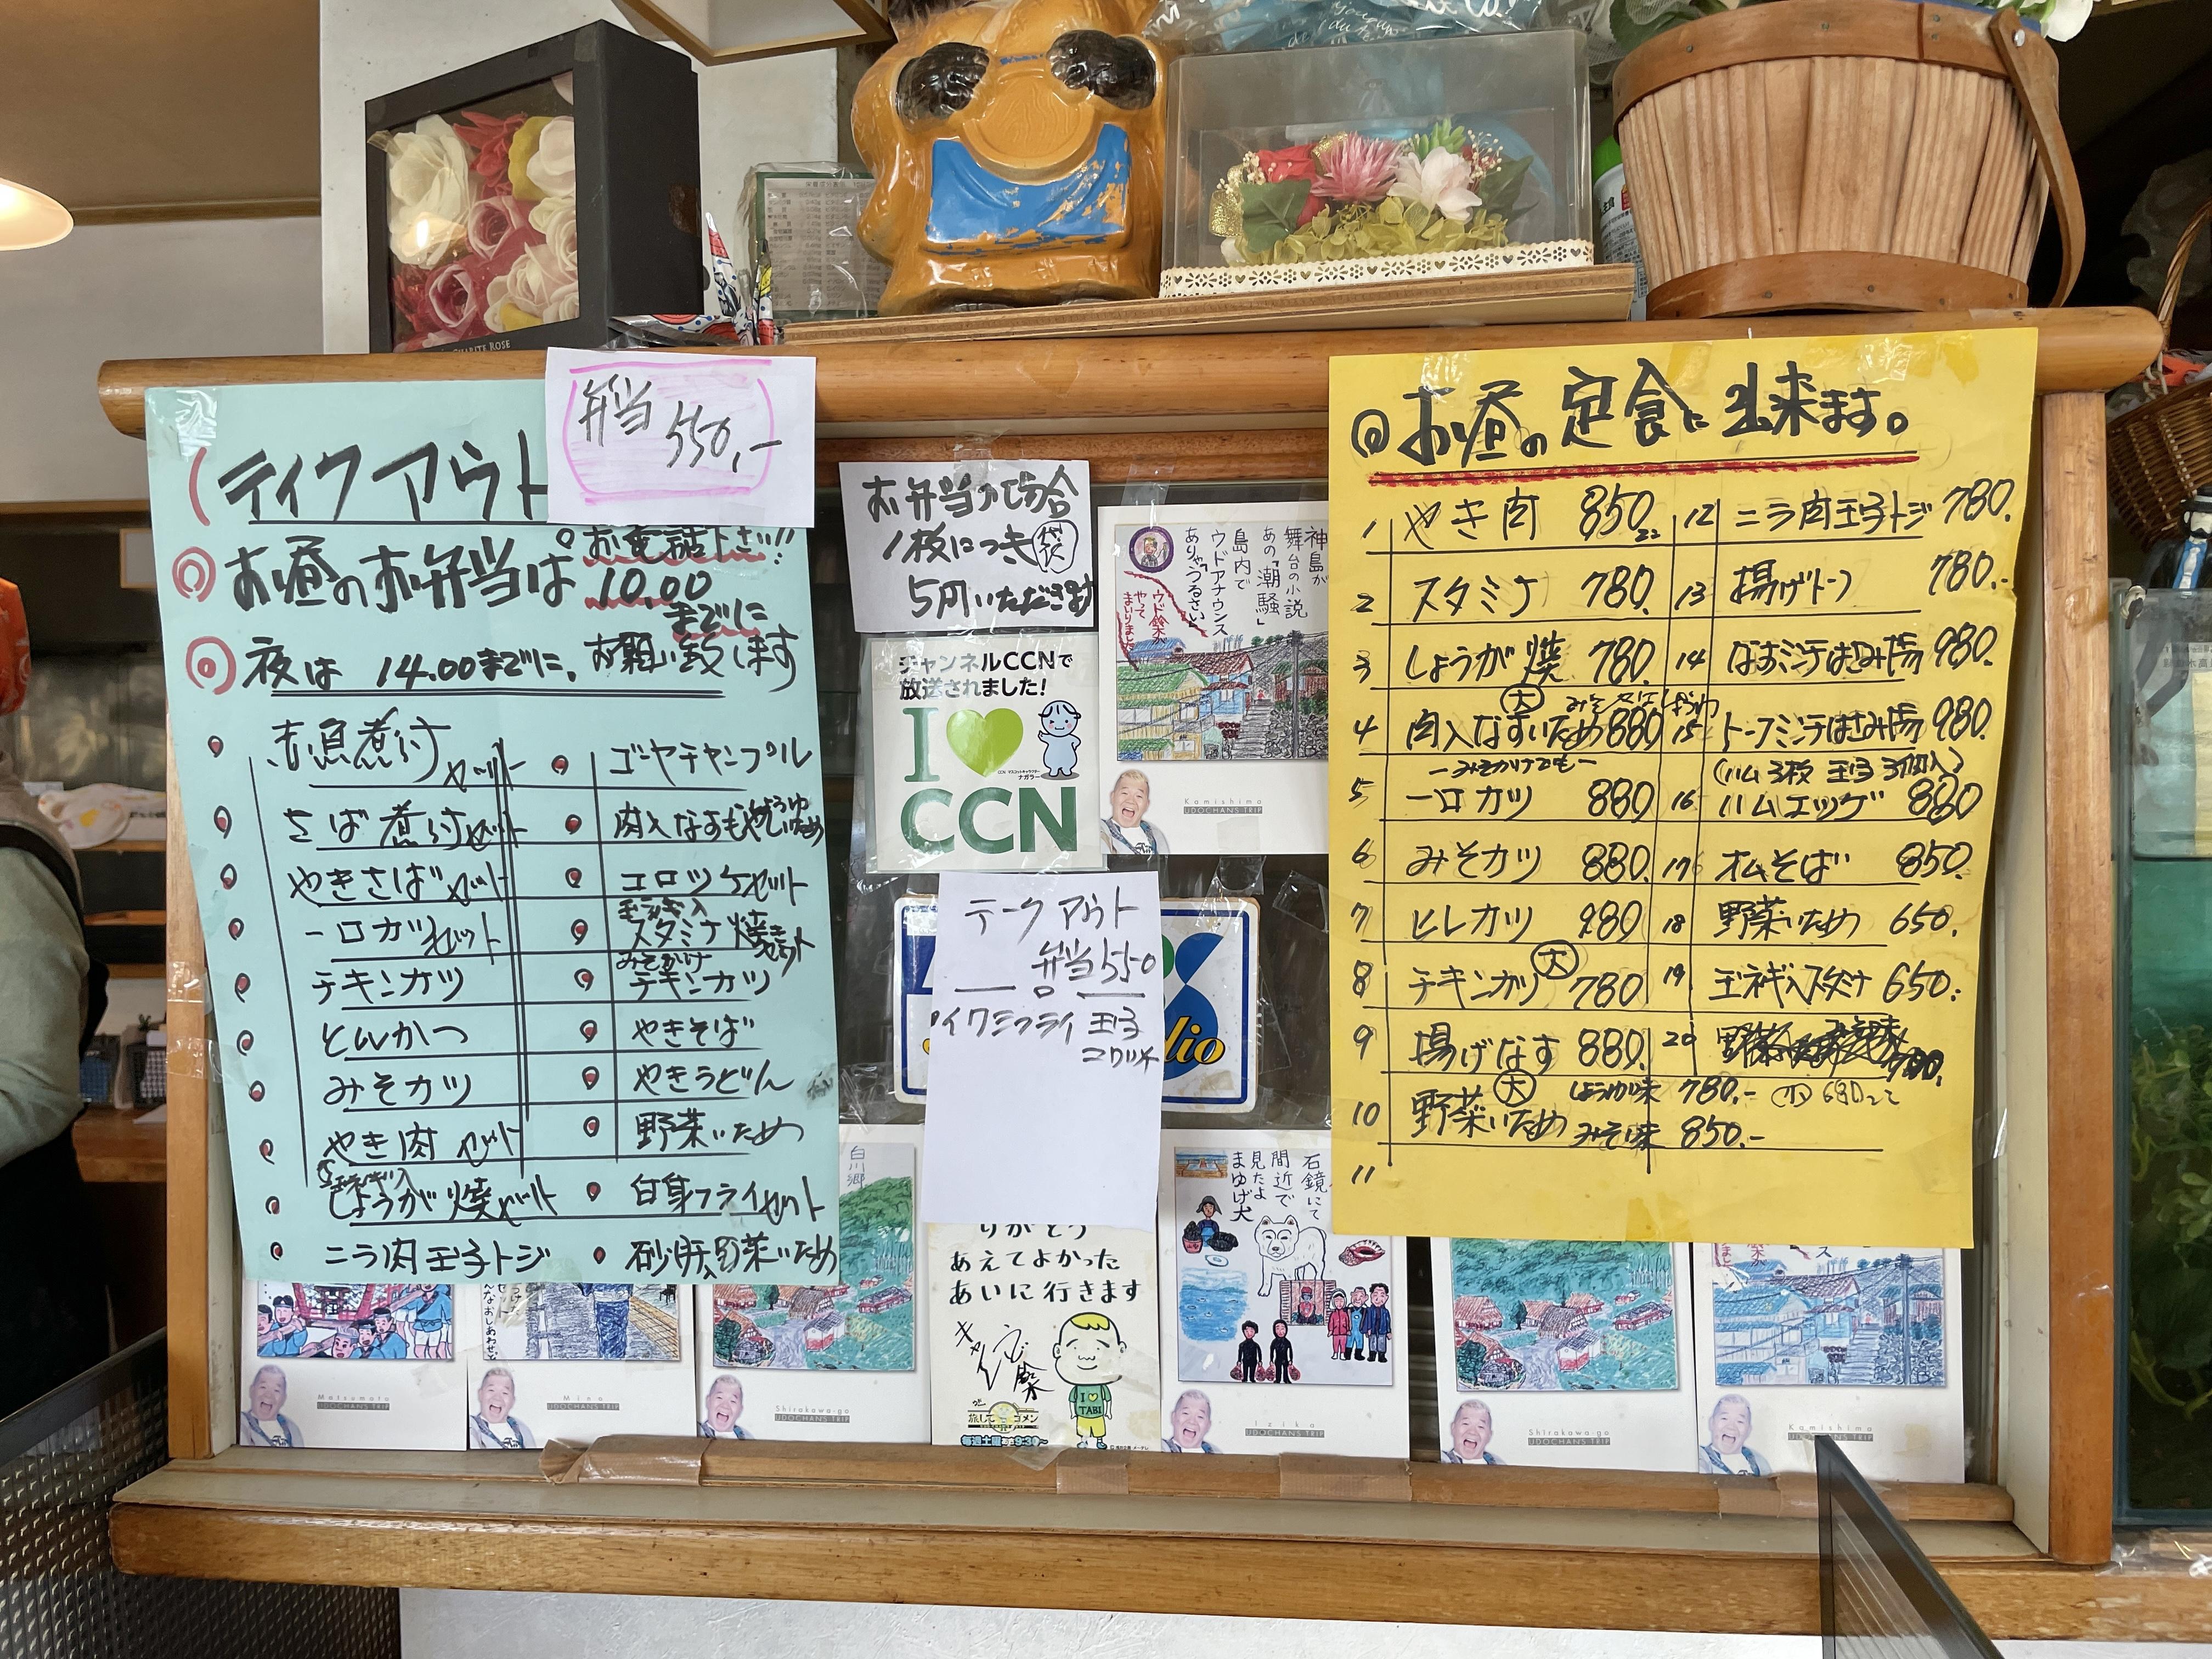 CHARITE ROSE
弁当
550.-
テイクアウト
お電話下さい!!
お昼のお弁当は 10.00
までに
夜は 14.00までに、お願い致します
赤魚煮付セット
ゴーヤチャンプル
さば煮付セット
やきさばセット
コロッケセット
一口カツセット
玉ネギ入
スタミナ焼きセット
チキンカツ
みそかけ
チキンカツ
とんかつ
やきそば
みそカツ
やきうどん
やき肉セット
野菜いため
玉ネギ入
しょうが焼セット
白身フライセット
ニラ肉玉子トジ
砂肝入野菜いため
お弁当の場合
1枚につき 袋
5円いただきます
チャンネルCCNで
放送されました!
I
CCN
CCN マスコットキャラクター
ナガラー
神島が
舞台の小説
あの「潮騒」
島内で
ウドアナウンス
ありゃ「うるさい」
ウド鈴木が
やって
まいりました
Kamishima
UDOCHANS TRIP
テークアウト
弁当550
イワシフライ 玉子
コロッケ
◎お昼の定食に出来ます。
1 やき肉 850
2 スタミナ 780.
3 しょうが焼 780.
大
4 肉入なすいため 880
みそ又はしょうゆ
5 一口カツ 880
-みそかけでも-
6 みそカツ 880.
7 ヒレカツ 980
8 チキンカツ 大 780
9 揚げなす 880.
10 野菜いため 大
しょうゆ味 780.-
小 680
みそ味 850.-
11
12 ニラ肉玉子トジ 780.
13 揚げトーフ 780.-
14 なすミンチはさみ揚 980.
15 トーフミンチはさみ揚 980.
(ハム3枚 玉子3個入)
16 ハムエッグ 880
17 オムそば 850.
18 野菜いため 650.
19 玉ネギ入スタミナ 650.
20
白川郷
りがとう
あえてよかった
あいに行きます
I TABI
旅してゴメン
毎週土曜 9:30～
石鏡にて
間近で
見たよ
まゆげ犬
Matsumoto
UDOCHANS TRIP
Mino
UDOCHANS TRIP
Shirakawa-go
UDOCHANS TRIP
Izika
UDOCHANS TRIP
Shirakawa-go
UDOCHANS TRIP
Kamishima
UDOCHANS TRIP